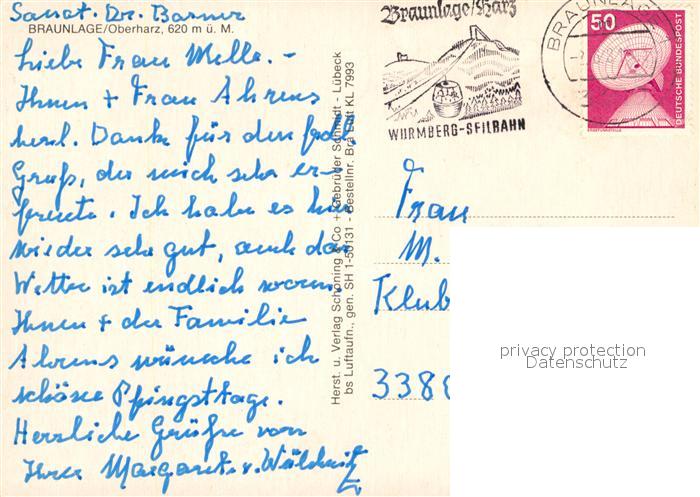 Sanat. Dr. Barner
BRAUNLAGE/Oberharz, 620 m ü. M.
Liebe Frau Melle. -
Ihnen + Frau Ahrens
herzl. Dank für den
Gruß, der mich sehr er-
freute. Ich habe es hier
wieder sehr gut, auch das
Wetter ist endlich warm.
Ihnen + der Familie
Ahrens wünsche ich
schöne Pfingsttage.
Herzliche Grüße von
Ihrer Margarete v.
Herst. u. Verlag Schöning & Co + Gebrüder Schmidt - Lübeck
bs Luftaufn., gen. SH 1-50131 - Bestellnr. Bra Luft KL 7993
Braunlage/Harz
WURMBERG-SEILBAHN
BRAUNLAGE
50
DEUTSCHE BUNDESPOST
ERDEFUNKSTELLE
Frau
M.
Klub
338
privacy protection
Datenschutz